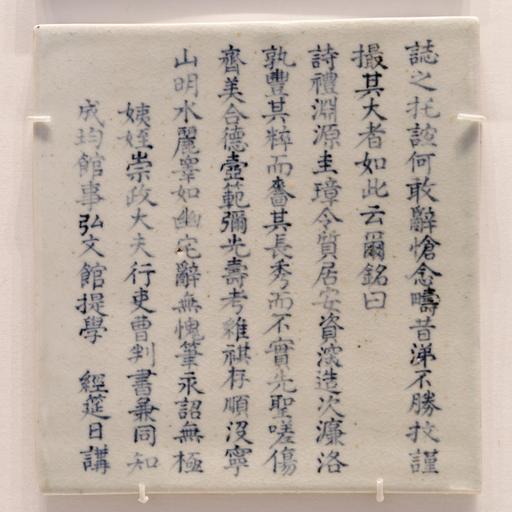 誌之托誼何敢辭愴念疇昔涕不勝抆謹
撮其大者如此云爾銘曰
詩禮淵源圭璋令質居安資深造次濂洛
孰豐其粹而嗇其長秀而不實先聖嗟傷
齊美合德壼範彌光壽考維祺存順沒寧
山明水麗睾如幽宅辭無愧筆永詔無極
姨姪崇政大夫行吏曹判書兼同知
成均館事弘文館提學 經筵日講